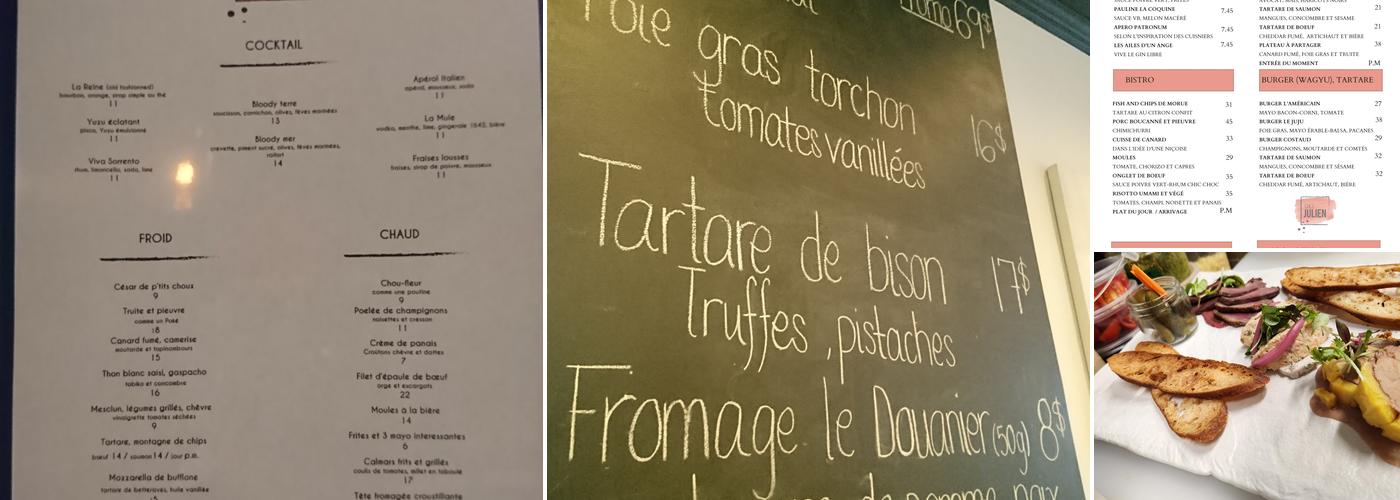 COCKTAIL
La Reine (old fashionned)
bourbon, orange, sirop simple au thé
11
Yuzu éclatant
pisco, Yuzu émulsionné
11
Viva Sorrento
rhum, limoncello, soda, lime
11
Bloody terre
saucisson, cornichon, olives, fèves marinées
13
Bloody mer
crevette, piment sucré, olives, fèves marinées,
14
Apérol Italien
apérol, mousseux, soda
11
La Mule
vodka, menthe, lime, gingerale 1642, bière
11
Fraises lousses
fraises, sirop de poivre, mousseux
11
FROID
César de p'tits choux
9
Truite et pieuvre
comme un Poké
18
Canard fumé, camerise
moutarde et topinambours
15
Thon blanc saisi, gaspacho
tobiko et concombre
16
Mesclun, légumes grillés, chèvre
vinaigrette tomates séchées
9
Tartare, montagne de chips
bœuf 14 / saumon 14 / jour p.m.
Mozzarella de bufflone
tartare de betteraves, huile vanillée
CHAUD
Chou-fleur
comme une poutine
9
Poêlée de champignons
noisettes et cresson
11
Crème de panais
Croûtons chèvre et dattes
7
Filet d'épaule de bœuf
orge et escargots
22
Moules à la bière
14
Frites et 3 mayo intéressantes
6
Calmars frits et grillés
coulis de tomates, millet en taboulé
17
Tête fromagée croustillante
69$
Foie gras torchon
tomates vanillées 16$
Tartare de bison 17$
Truffes, pistaches
Fromage le Douanier (50g) 8$
PAULINE LA COQUINE 7.45
SAUCE VB, MELON MACÉRÉ
APERO PATRONUM 7.45
SELON L'INSPIRATION DES CUISINIERS
LES AILES D'UN ANGE 7.45
VIVE LE GIN LIBRE
21
TARTARE DE SAUMON 21
MANGUES, CONCOMBRE ET SESAME
TARTARE DE BOEUF 21
CHEDDAR FUMÉ, ARTICHAUT ET BIÈRE
PLATEAU À PARTAGER 38
CANARD FUMÉ, FOIE GRAS ET TRUITE
ENTRÉE DU MOMENT P.M
BISTRO
FISH AND CHIPS DE MORUE 31
TARTARE AU CITRON CONFIT
PORC BOUCANNÉ ET PIEUVRE 45
CHIMICHURRI
CUISSE DE CANARD 33
DANS L'IDÉE D'UNE NIÇOISE
MOULES 29
TOMATE, CHORIZO ET CAPRES
ONGLET DE BOEUF 35
SAUCE POIVRE VERT-RHUM CHIC CHOC
RISOTTO UMAMI ET VÉGÉ 35
TOMATES, CHAMPI, NOISETTE ET PANAIS
PLAT DU JOUR / ARRIVAGE P.M
BURGER (WAGYU), TARTARE
BURGER L'AMÉRICAIN 27
MAYO BACON-CORNI, TOMATE
BURGER LE JUJU 38
FOIE GRAS, MAYO ÉRABLE-BALSA, PACANES
BURGER COSTAUD 29
CHAMPIGNONS, MOUTARDE ET COMTÉS
TARTARE DE SAUMON 32
MANGUES, CONCOMBRE ET SÉSAME
TARTARE DE BOEUF 32
CHEDDAR FUMÉ, ARTICHAUT, BIÈRE
JULIEN